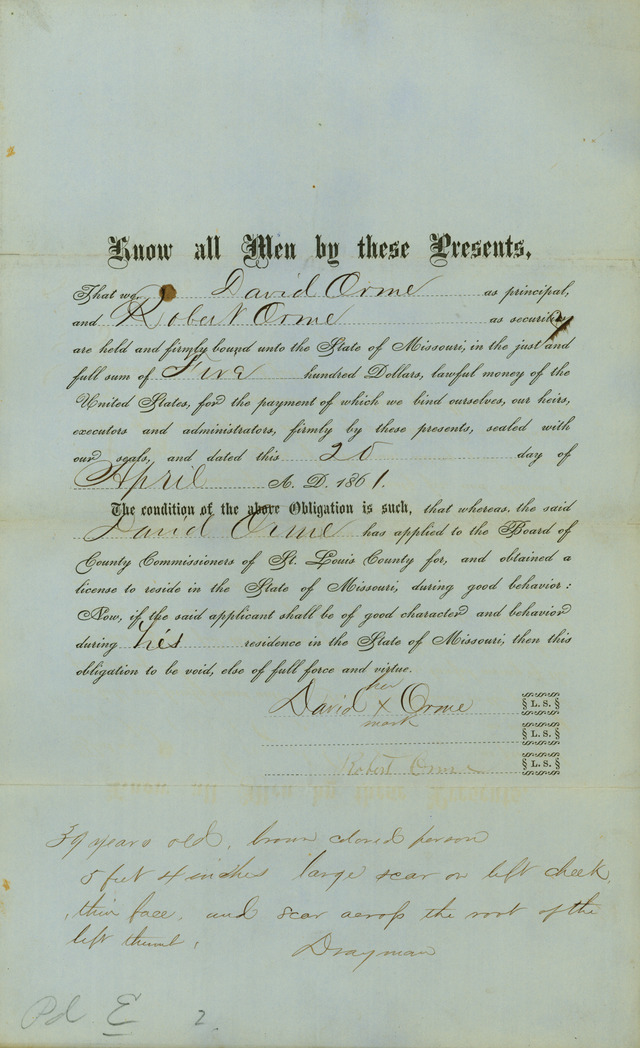 Know all Men by these Presents,
That we, David Orme as principal,
and Robert Orme as security
are held and firmly bound unto the State of Missouri, in the just and
full sum of Five hundred Dollars, lawful money of the
United States, for the payment of which we bind ourselves, our heirs,
executors and administrators, firmly by these presents, sealed with
our seals, and dated this 20 day of
April A. D. 1861.
The condition of the above Obligation is such, that whereas, the said
David Orme has applied to the Board of
County Commissioners of St. Louis County for, and obtained a
license to reside in the State of Missouri, during good behavior:
Now, if the said applicant shall be of good character and behavior
during his residence in the State of Missouri, then this
obligation to be void, else of full force and virtue.
her
David X Orme § L. S. §
mark
§ L. S. §
Robert Orme § L. S. §
39 years old, brown clored person
5 feet 4 inches large scar on left cheek,
thin face, and scar across the root of the
left thumb, Drayman
Pd E 2